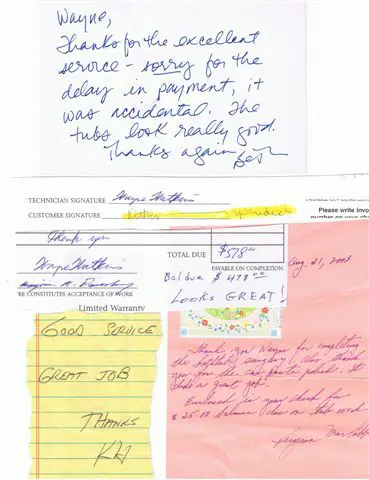 Wayne,
Thanks for the excellent
service - sorry for the
delay in payment, it
was accidental. The
tubs look really good.
Thanks again Beth
TECHNICIAN SIGNATURE Wayne Watkins
CUSTOMER SIGNATURE
Please write invo
Thank you
Wayne Watkins
RE CONSTITUTES ACCEPTANCE OF WORK
Limited Warranty
TOTAL DUE $578.00
PAYABLE ON COMPLETION
Bal due $ 478.00
Looks GREAT!
GOOD SERVICE
GREAT JOB
THANKS
KH
Aug. 21, 2008
Thank you Wayne for completing
the
Also, thank
you for the
It
a great job.
Enclosed is your check for
$ 25.00 balance due on tub work